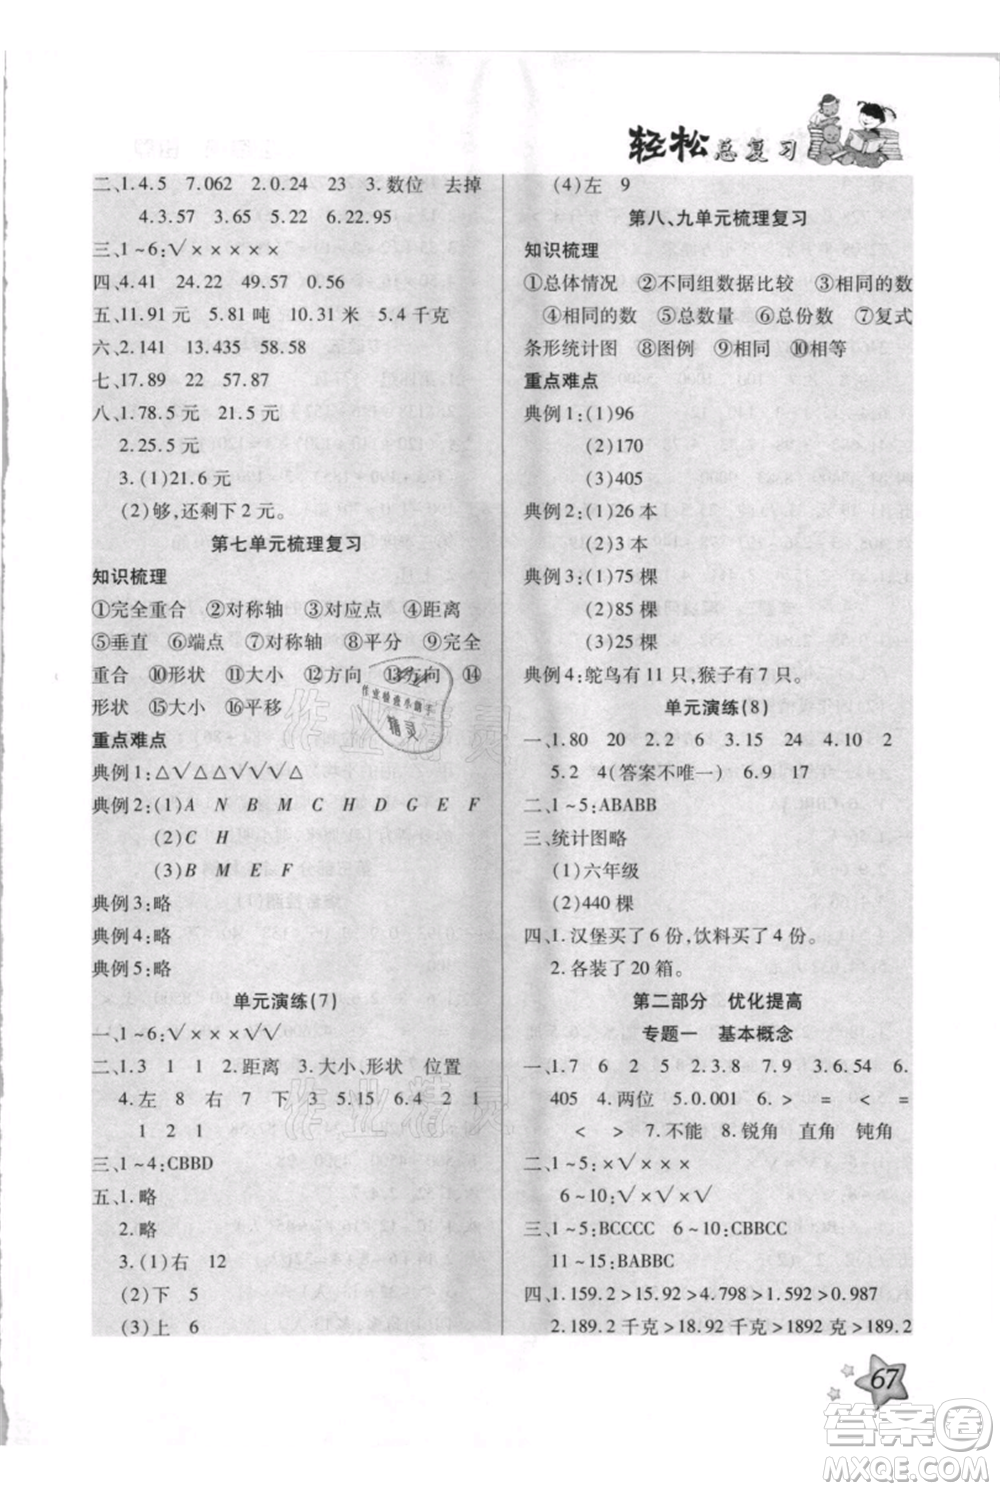 轻松总复习
二、1.4.5 7.062 2.0.24 23 3.数位 去掉
4.3.57 3.65 5.22 6.22.95
三、1~6:√×××××
四、4.41 24.22 49.57 0.56
五、11.91元 9.81吨 10.31米 5.4千克
六、2.141 13.435 58.58
七、17.89 22 57.87
八、1.78.5元 21.5元
2.25.5元
3.(1)21.6元
(2)够,还剩下2元。
第七单元梳理复习
知识梳理
①完全重合 ②对称轴 ③对应点 ④距离
⑤垂直 ⑥端点 ⑦对称轴 ⑧平分 ⑨完全
重合 ⑩形状 ⑪大小 ⑫方向 ⑬方向 ⑭
形状 ⑮大小 ⑯平移
重点难点
典例1:△√√△√√√△
典例2:(1)A N B M C H D G E F
(2)C H
(3)B M E F
典例3:略
典例4:略
典例5:略
单元演练(7)
一、1~6:√×××√√
二、1.3 1 1 2.距离 3.大小、形状 位置
4.左 8 右 7 下 3 5.15 6.4 2 1
1 2 1
三、1~4:CBBD
五、1.略
2.略
3.(1)右 12
(2)下 5
(3)上 6
(4)左 9
第八、九单元梳理复习
知识梳理
①总体情况 ②不同组数据比较 ③相同的数
④相同的数 ⑤总数量 ⑥总份数 ⑦复式
条形统计图 ⑧图例 ⑨相同 ⑩相等
重点难点
典例1:(1)96
(2)170
(3)405
典例2:(1)26本
(2)3本
典例3:(1)75棵
(2)85棵
(3)25棵
典例4:鸵鸟有11只,猴子有7只。
单元演练(8)
一、1.80 20 2.2 6 3.15 24 4.10 2
5.2 4(答案不唯一) 6.9 17
二、1~5:ABABB
三、统计图略
(1)六年级
(2)440棵
四、1.汉堡买了6份,饮料买了4份。
2.各装了20箱。
第二部分 优化提高
专题一 基本概念
一、1.7 6 2 5 2.3.8 3.9 47 6.
405 4.两位 5.0.001 6.> = < =
< > 7.不能 8.锐角 直角 钝角
二、1~5:×√×××
6~10:√√×√×
三、1~5:BCCCC 6~10:CBBCC
11~15:BABBC
四、1.159.2>15.92>4.798>1.592>0.987
2.189.2千克>18.92千克>1892克>189.2
67
作业检查小助手
精灵
作业精灵
作业精灵
答案卷
MXQE.COM